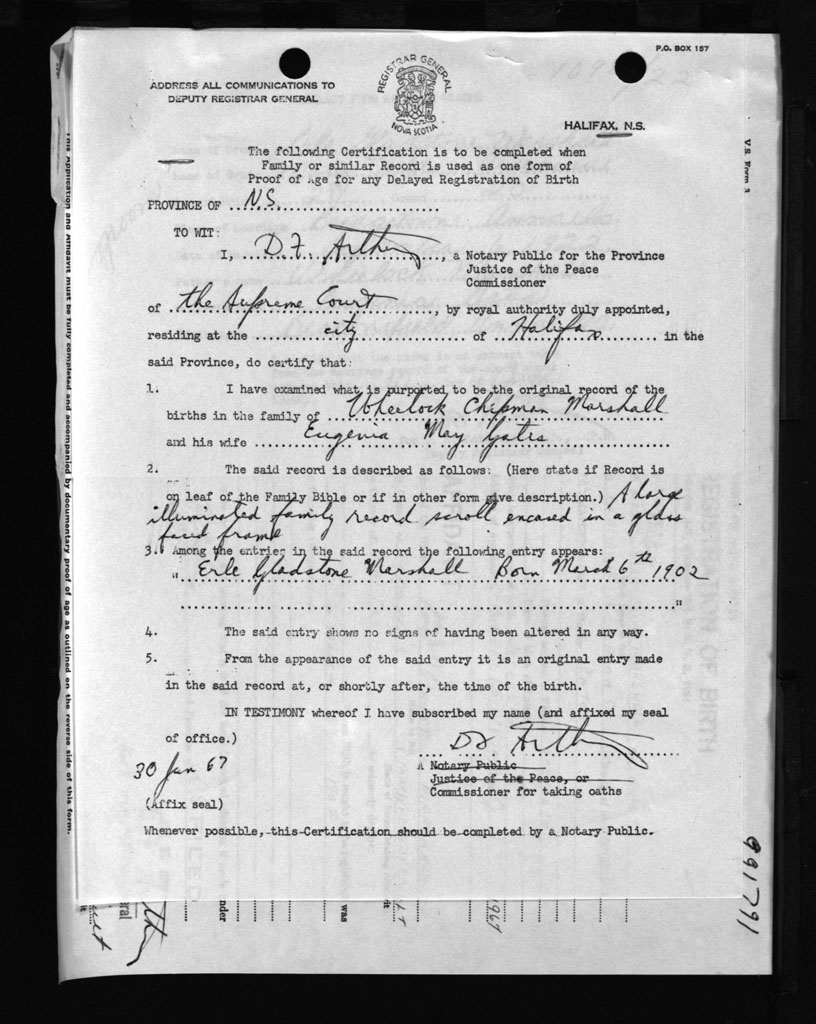 P.O. BOX 157
ADDRESS ALL COMMUNICATIONS TO
DEPUTY REGISTRAR GENERAL
REGISTRAR GENERAL
NOVA SCOTIA
HALIFAX, N.S.
V.S. Form 3
The following Certification is to be completed when
Family or similar Record is used as one form of
Proof of Age for any Delayed Registration of Birth
PROVINCE OF N.S.
TO WIT:
I, D.F. , a Notary Public for the Province
Justice of the Peace
Commissioner
of the Supreme Court, by royal authority duly appointed,
residing at the city of Halifax in the
said Province, do certify that:
1. I have examined what is purported to be the original record of the
births in the family of Wheelock Chipman Marshall
and his wife Eugenia May Gates
2. The said record is described as follows: (Here state if Record is
on leaf of the Family Bible or if in other form give description.) A large
illuminated family record scroll encased in a glass
faced frame
3. Among the entries in the said record the following entry appears:
" Erle Gladstone Marshall Born March 6th 1902
"
4. The said entry shows no signs of having been altered in any way.
5. From the appearance of the said entry it is an original entry made
in the said record at, or shortly after, the time of the birth.
IN TESTIMONY whereof I have subscribed my name (and affixed my seal
of office.)
30 Jan 67
A Notary Public
Justice of the Peace, or
Commissioner for taking oaths
(Affix seal)
Whenever possible, this Certification should be completed by a Notary Public.
This Application and Affidavit must be fully completed and accompanied by documentary proof of age as outlined on the reverse side of this form.
991791
nder
was
1967